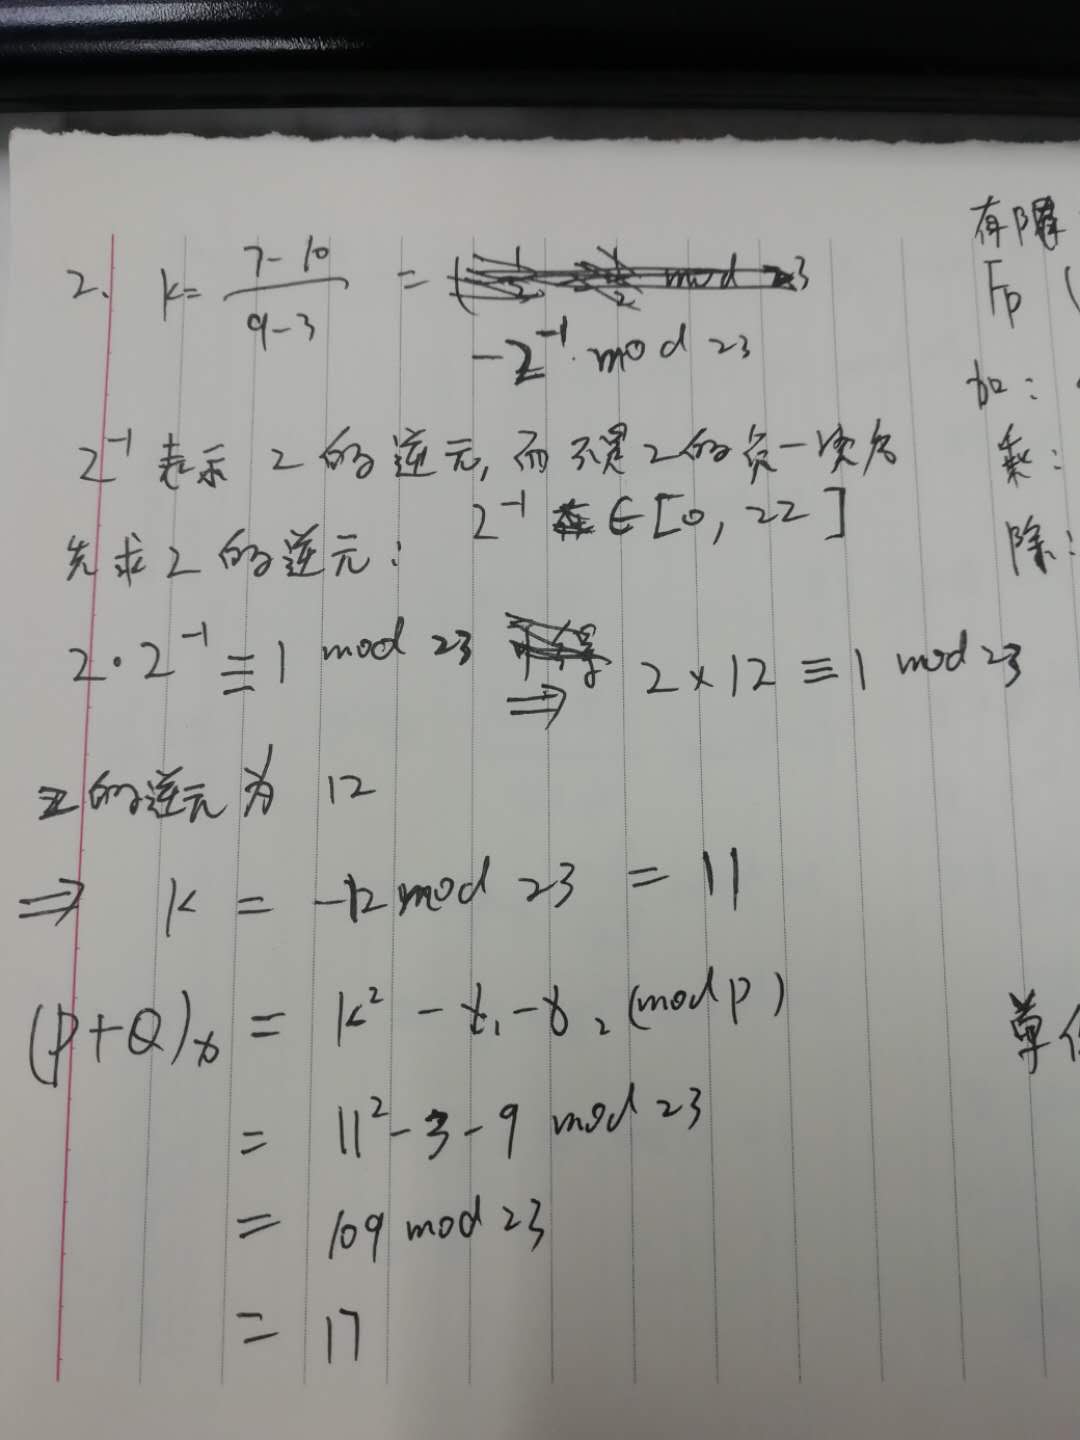 2. k = \frac{7-10}{9-3} = -2^{-1} mod 23
2^{-1} 表示 2 的逆元, 而不是 2 的负一次方
先求 2 的逆元: 2^{-1} ∈ [0, 22]
2 · 2^{-1} ≡ 1 mod 23 ⇒ 2 × 12 ≡ 1 mod 23
2 的逆元为 12
⇒ k = -12 mod 23 = 11
(P+Q)_x = k² - x₁ - x₂ (mod p)
= 11² - 3 - 9 mod 23
= 109 mod 23
= 17
有限
Fp (
加:
乘:
除:
单位